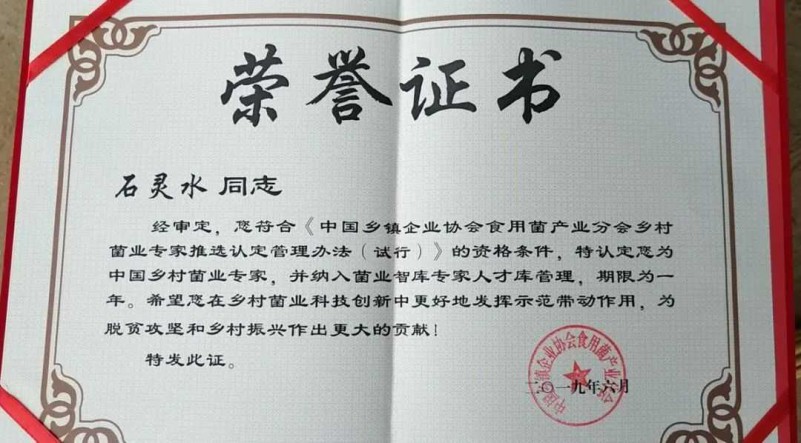 荣誉证书
石灵水 同志
经审定，您符合《中国乡镇企业协会食用菌产业分会乡村
菌业专家推选认定管理办法（试行）》的资格条件，特认定您为
中国乡村菌业专家，并纳入菌业智库专家人才库管理，期限为一
年。希望您在乡村菌业科技创新中更好地发挥示范带动作用，为
脱贫攻坚和乡村振兴作出更大的贡献！
特发此证。
中国乡镇企业协会食用菌产业分会
二〇一九年六月